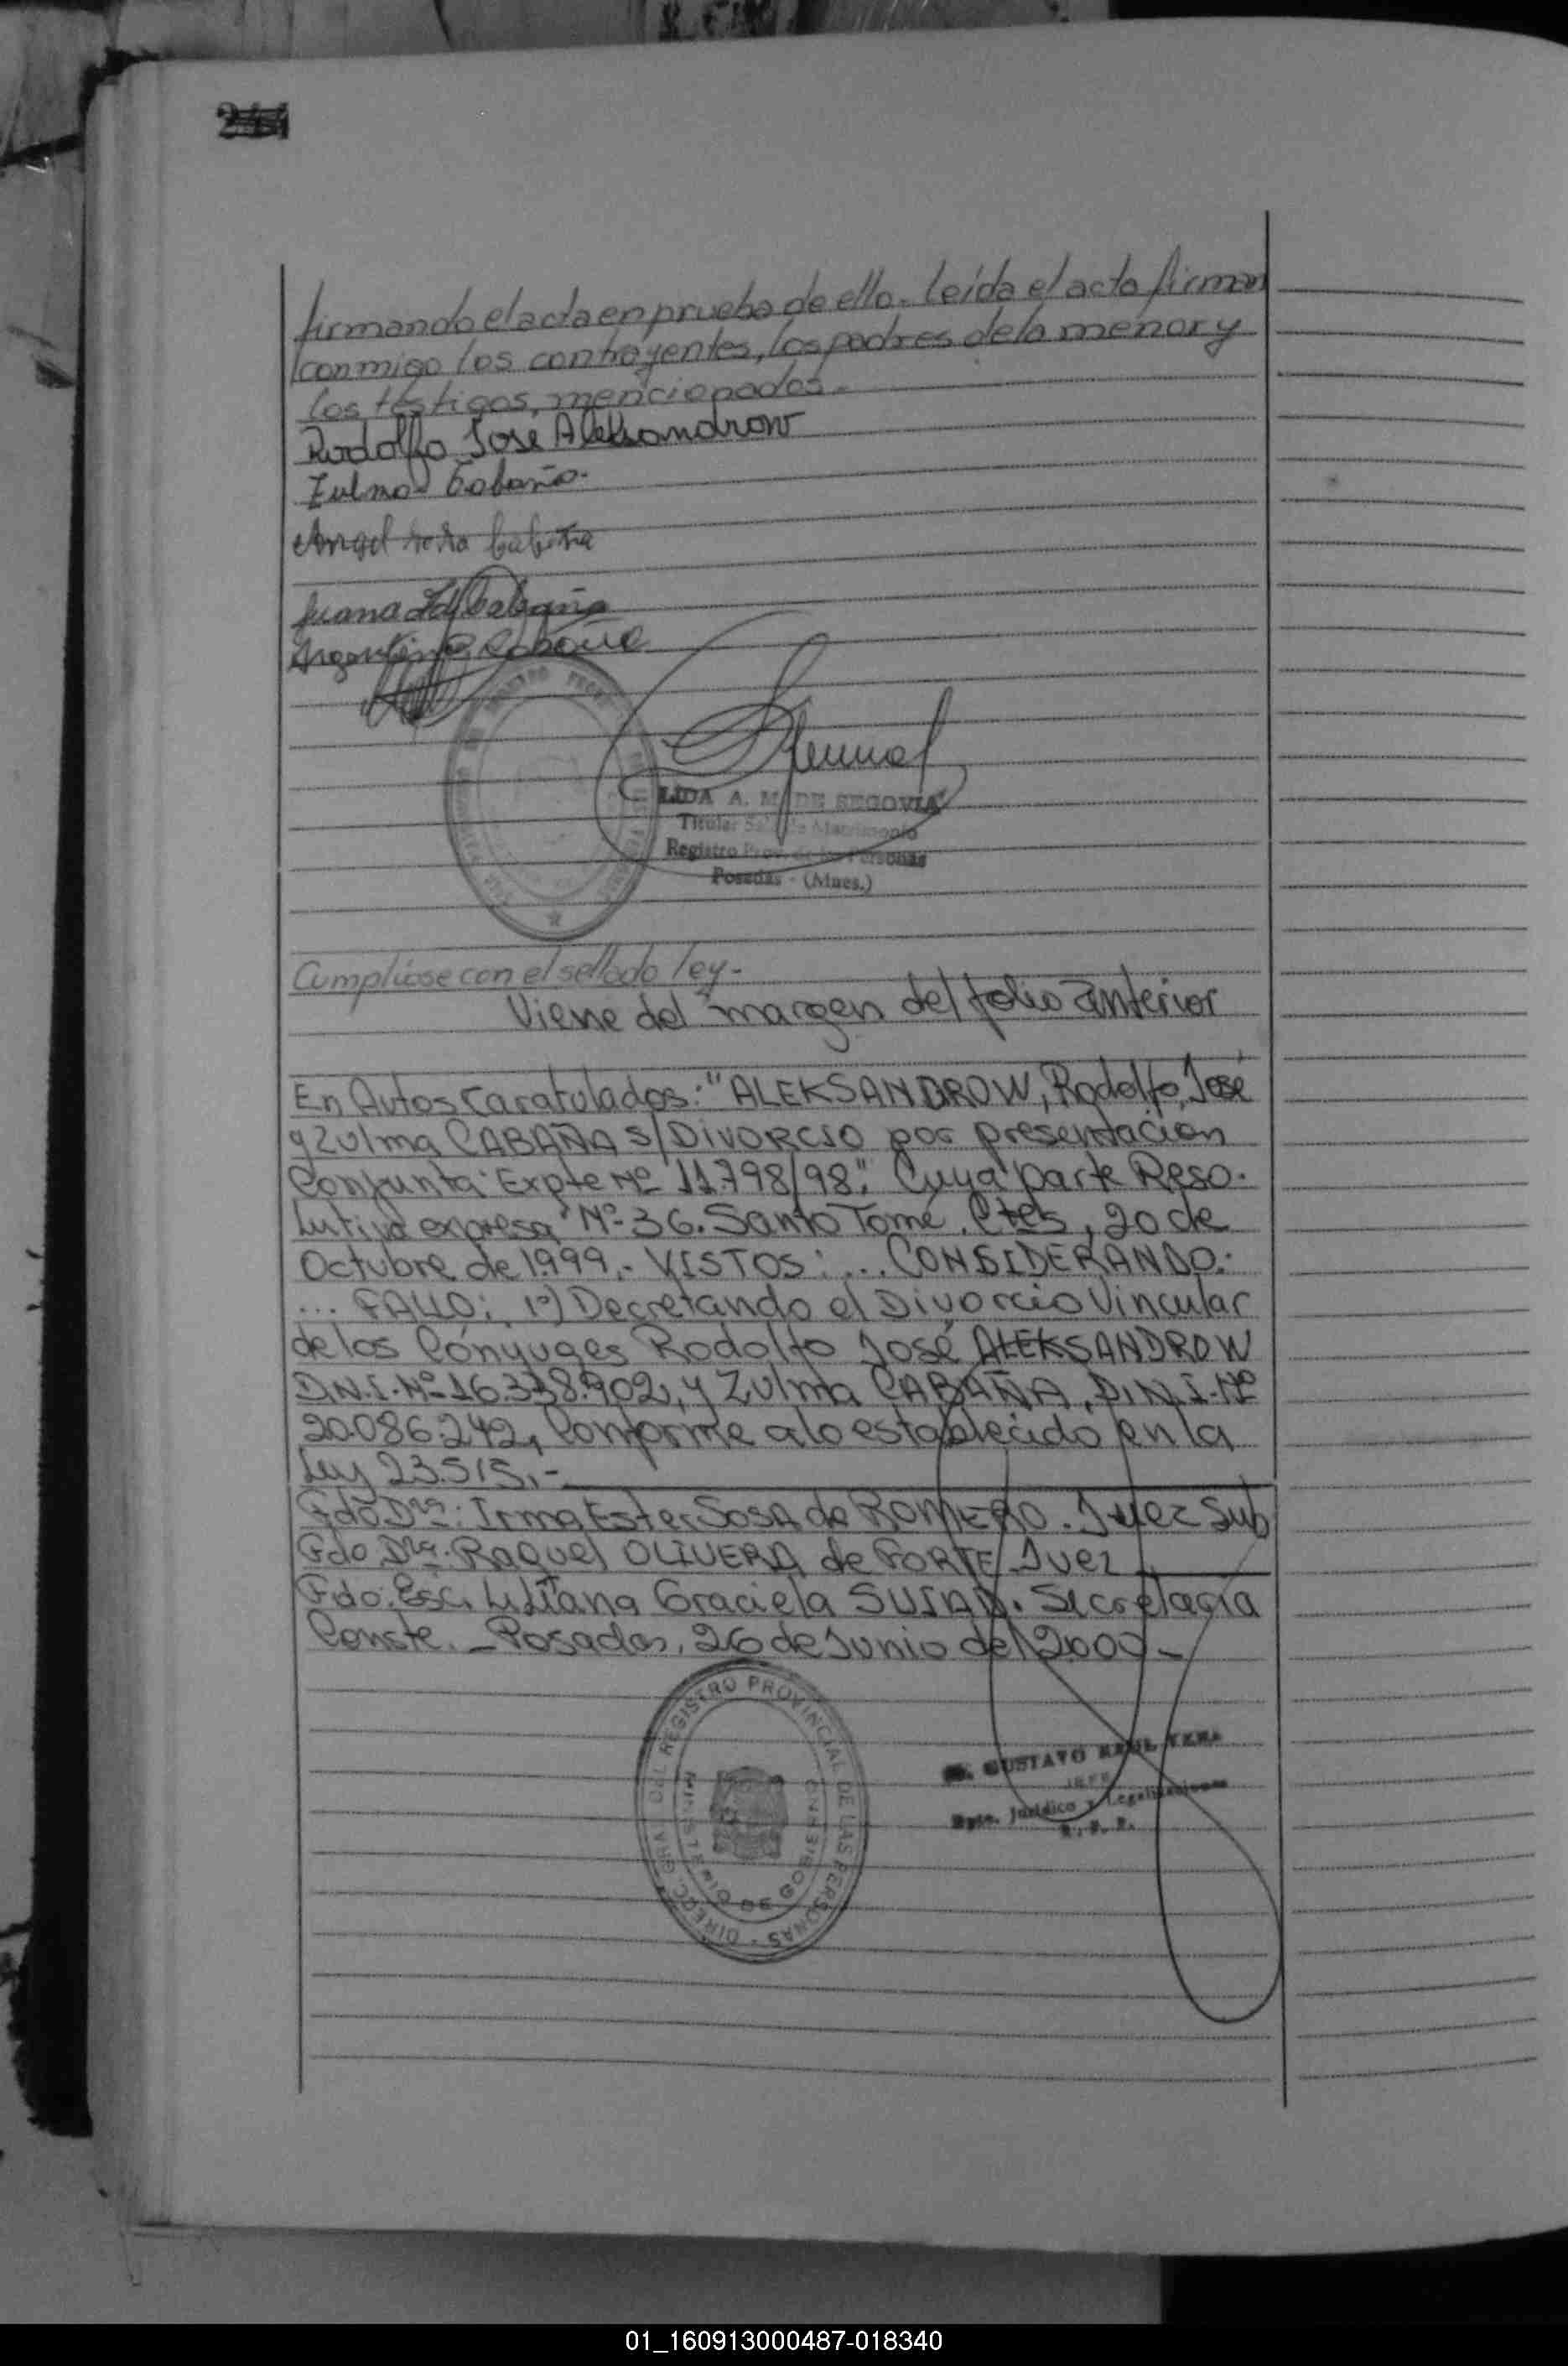 244
firmando el acta en prueba de ello. Leída el acta firman
conmigo los contrayentes, los padres de la menor y
los testigos, mencionados.-
Rodolfo Jose Aleksandrow
Zulma Cabaña.
Angel
Juana
Argentina Cabaña
LIDA A. M. DE SEGOVIA
Titular Sala de Matrimonio
Registro Prov. de las Personas
Posadas - (Mnes.)
Cumplióse con el sellado ley-
Viene del margen del folio anterior
En Autos Caratulados: "ALEKSANDROW, Rodolfo, José
y Zulma CABAÑA S/ DIVORCIO por presentación
Conjunta Expte Nº 11.798/98". Cuya parte Reso-
lutiva expresa "Nº 36. Santo Tomé. Ctes, 20 de
Octubre de 1999.- VISTOS: ... CONSIDERANDO:
... FALLO: 1º) Decretando el Divorcio Vincular
de los Cónyuges Rodolfo José ALEKSANDROW
D.N.I. Nº 16.338.902, y Zulma CABAÑA, D.N.I. Nº
20.086.242, Conforme a lo establecido en la
Ley 23.515.-
Fdo Dra: Irma Ester SOSA de ROMERO. Juez Sub
Fdo. Dra. Raquel OLIVERA de FORTE Juez
Fdo. Esc. Liliana Graciela Secretaria
Conste. - Posadas, 26 de Junio del 2000 -
DIRECC. GRAL. DEL REGISTRO PROVINCIAL DE LAS PERSONAS -
MINISTERIO DE GOBIERNO
GUSTAVO RAUL VERA
JEFE
Dpto. Jurídico y Legalizaciones
R. P. P.
01_160913000487-018340